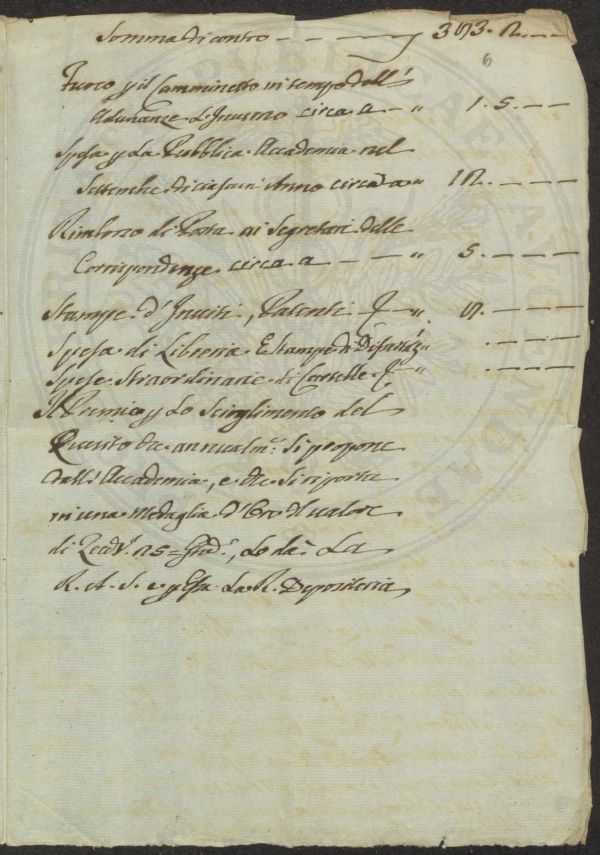 Somma di contro — — — 353. 12. — —
6
Fuoco p il Camminetto in tempo dell'
Adunanze d'Inverno circa a — „ 1. 5. — —
Spesa p La Pubblica Accademia nel
Settembre di ciascun' Anno circa a „ 12. — — —
Rimborso di Posta ai Segretari delle
Corrispondenze circa a — — „ 5. — — —
Stampe d'Inviti, Patenti &c. „ 9. — — —
Spesa di Libreria E Stampe di „ . — — —
Spese Straordinarie di „ . — — —
Il Premio p Lo Scioglimento del
Quesito che annualm.e si propone
dall' Accademia, e che si riporta
in una Medaglia d'Oro del valore
di Zecch.i 25 = , Lo dà La
R. A. S. e p Essa La R. Depositeria